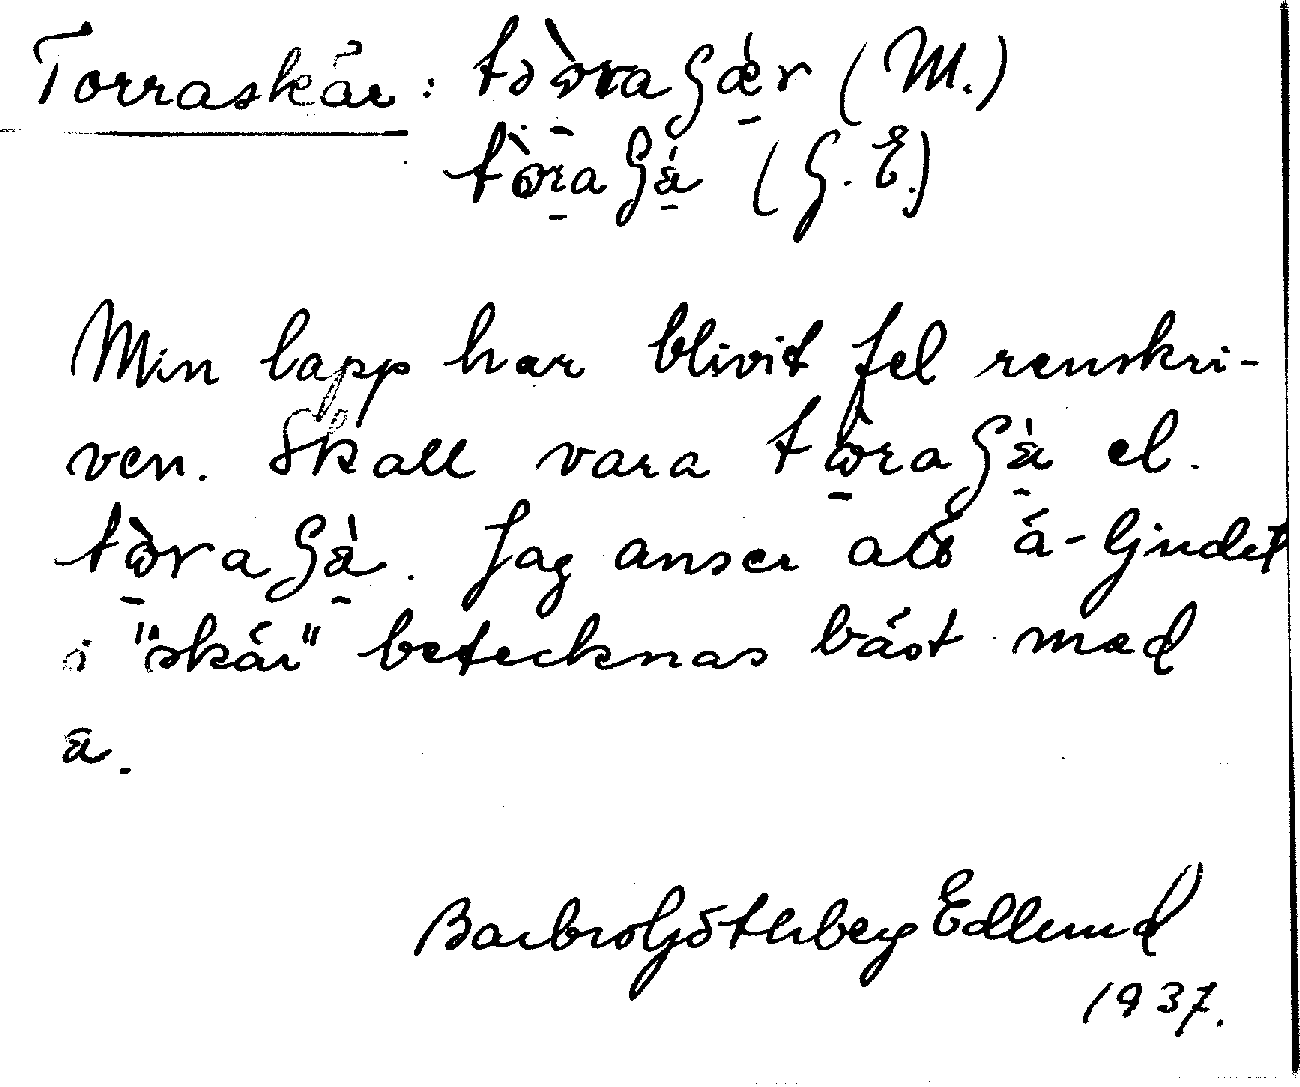 Torraskär: tòraʃæ̀r (M.)
tòraʃà (G. E.)
Min lapp har blivit fel renskri-
ven. Skall vara tòraʃà el.
tòraʃà. Jag anser att ä-ljudet
i "skär" betecknas bäst med
a.
Barbro Göthberg Edlund
1937.